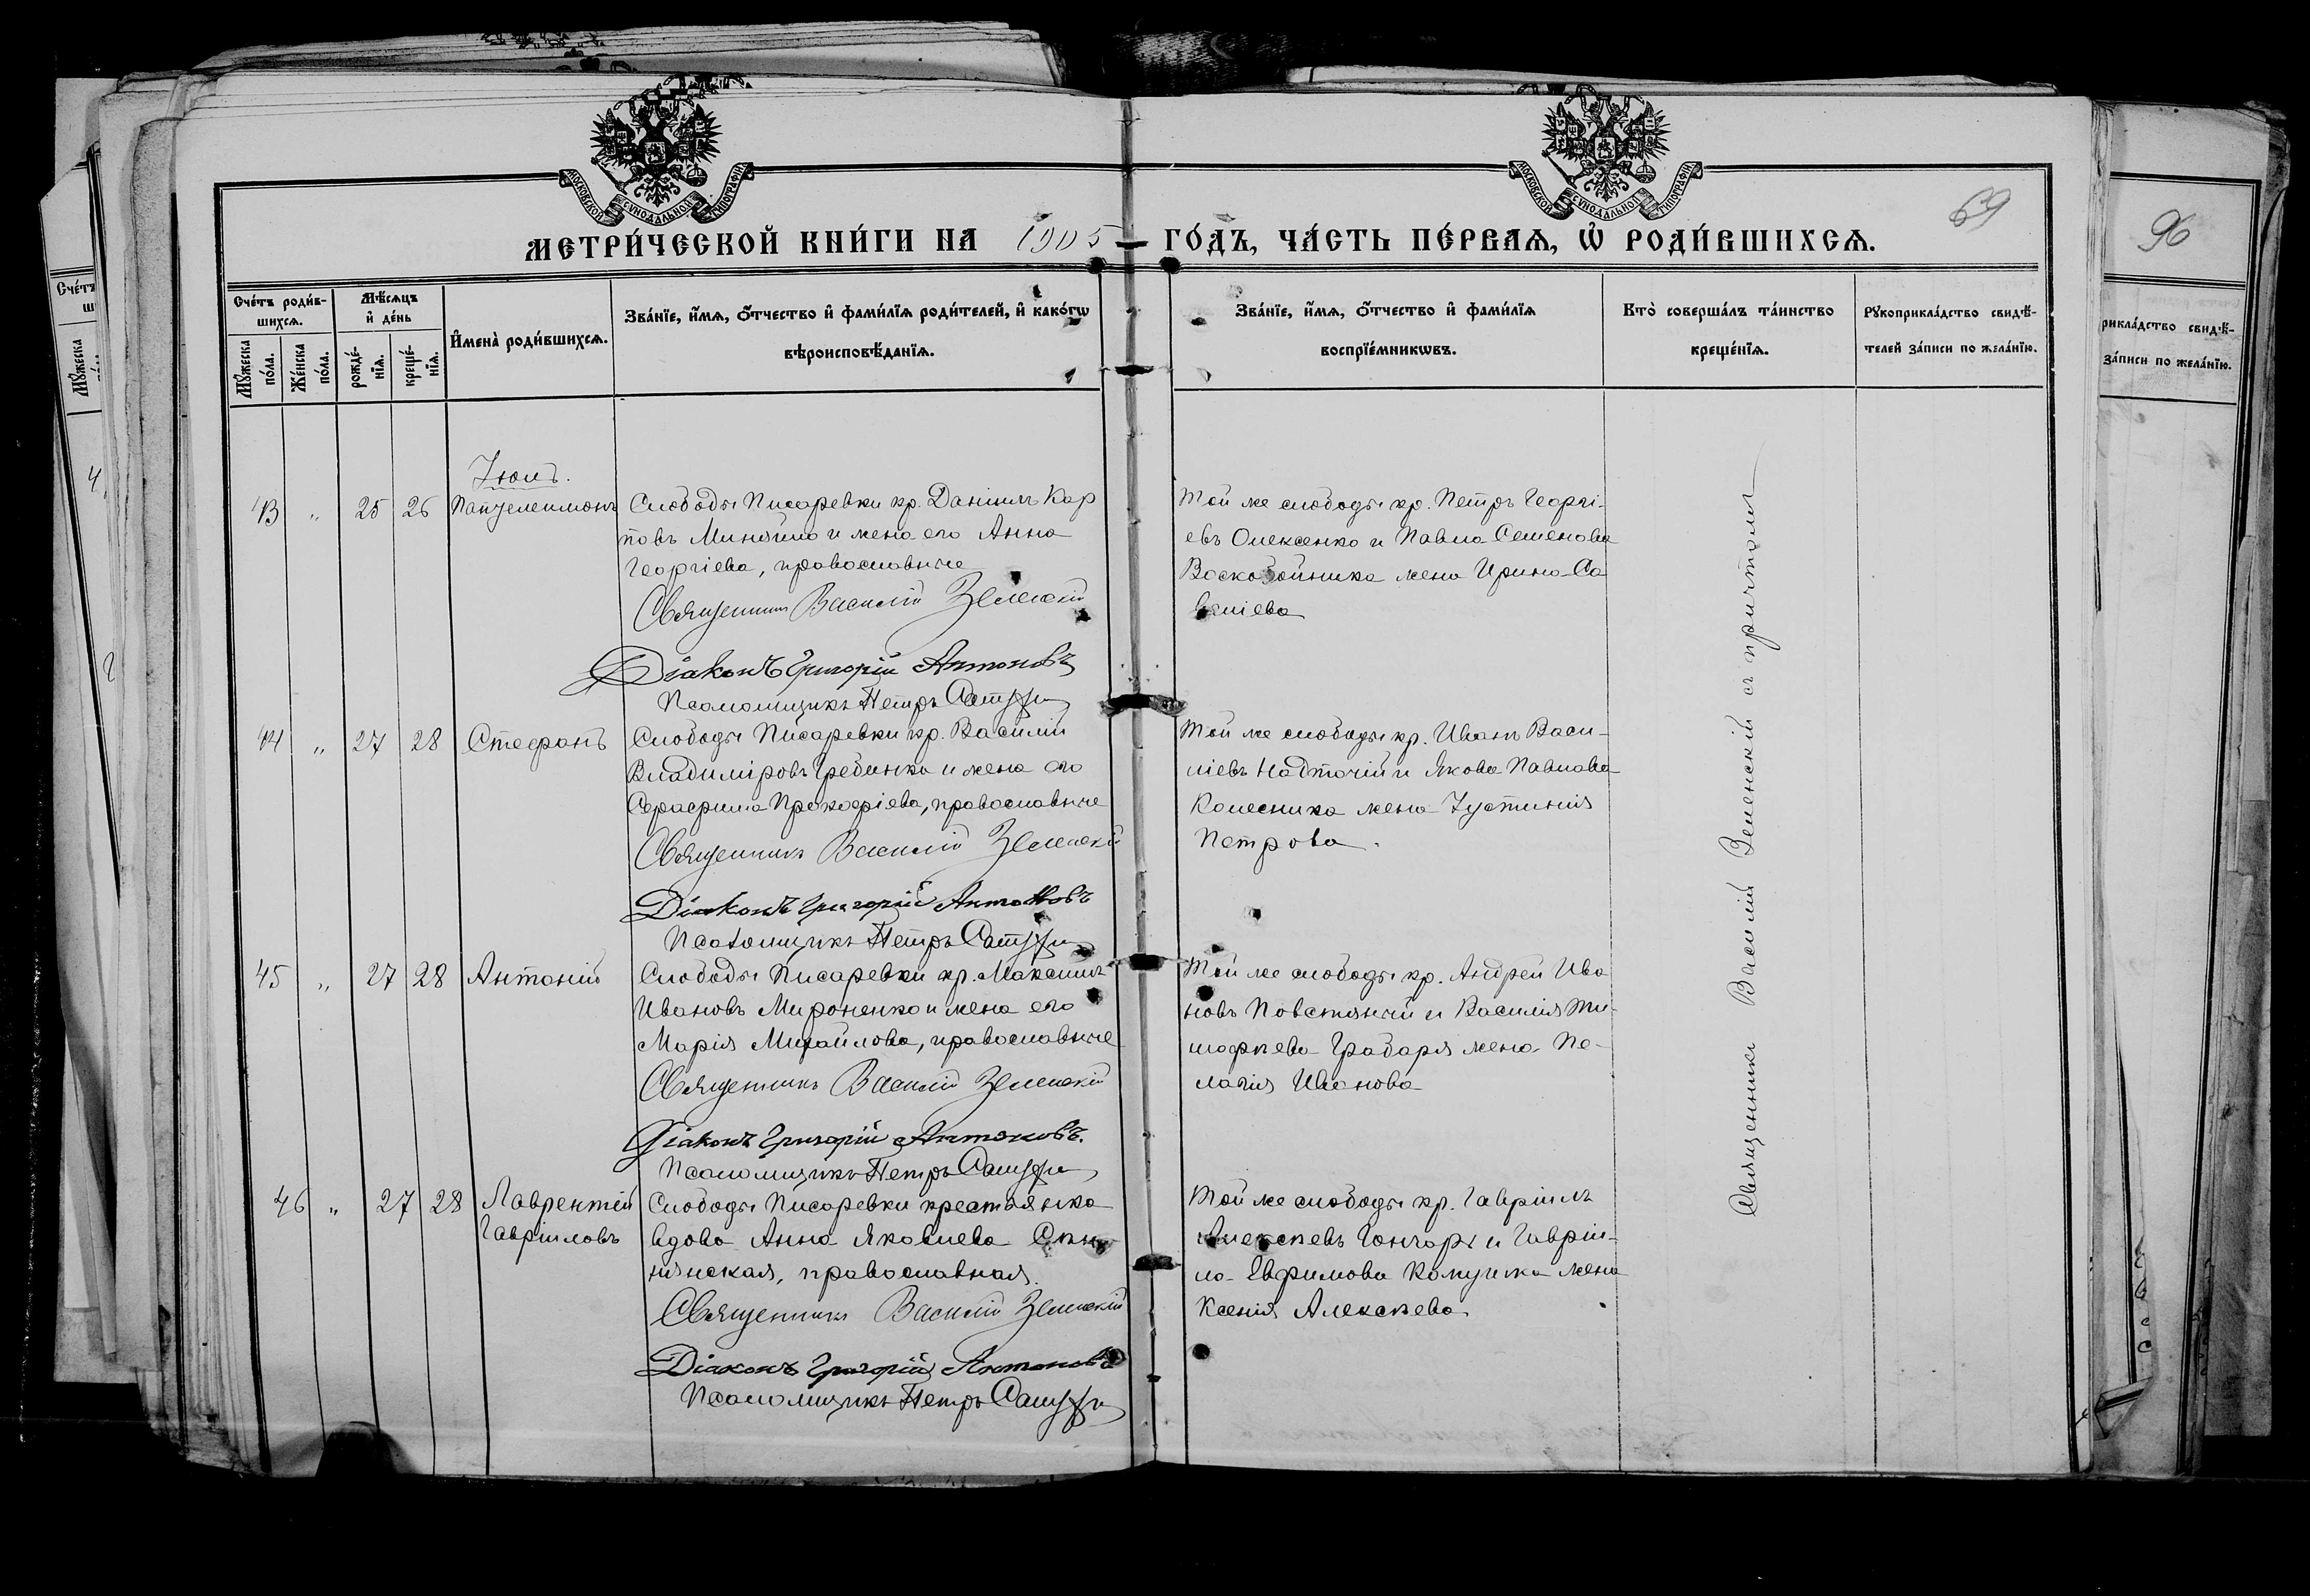 МОСКОВСКОЙ СѴНОДАЛЬНОЙ ТИПОГРАФІИ
МОСКОВСКОЙ СѴНОДАЛЬНОЙ ТИПОГРАФІИ
69
96
МЕТРИ́ЧЕСКОЙ КНИ́ГИ НА 1905 ГО́ДЪ, ЧА́СТЬ ПЕ́РВАЯ, Ѡ҆ РОДИ́ВШИХСЯ.
Сче́тъ роди́в-
шихся.
Мꙋ́жеска по́ла.
Же́нска по́ла.
Мѣ́сяцъ и҆ де́нь
рожде́-
нїя.
креще́-
нїя.
И҆мена̀ роди́вшихся.
Зва́нїе, и҆́мя, ѻ҆́тчество и҆ фами́лїя роди́телей, и҆ како́гѡ
вѣроисповѣ́данїя.
Зва́нїе, и҆́мя, ѻ҆́тчество и҆ фами́лїя
воспрїе́мникѡвъ.
Кто̀ соверша́лъ та́инство
креще́нїя.
Рꙋкоприкла́дство свидѣ́-
телей за́писи по жела́нїю.
Сче́тъ
Мꙋ́жеска
рикла́дство свидѣ́-
за́писи по жела́нїю.
Іюль.
43 " 25 26 Пантелеимонъ
Слободы Писаревки кр. Даніилъ Кар
повъ и жена его Анна
Георгіева, православные
Священникъ Василій Зеленскій
Діаконъ Григорій Антоновъ
Псаломщикъ Петръ
Той же слободы кр. Петръ Георгі-
евъ Олексенко и Павла Семенова
Воскобойника жена Ирина Са
веліева
44 " 27 28 Стефанъ
Слободы Писаревки кр. Василій
Владиміровъ Гребинка и жена его
Серафима Прокофіева, православные
Священникъ Василій Зеленскій
Діаконъ Григорій Антоновъ
Псаломщикъ Петръ
Той же слободы кр. Иванъ Васи-
ліевъ Надточій и Якова Павлова
Колесника жена Іустинія
Петрова.
45 " 27 28 Антоній
Слободы Писаревки кр. Максимъ
Ивановъ Мироненко и жена его
Марія Михайлова, православные
Священникъ Василій Зеленскій
Діаконъ Григорій Антоновъ.
Псаломщикъ Петръ
Той же слободы кр. Андрей Ива
новъ Повстяный и Василія Ти-
мофѣева Грабаря жена Пе-
лагія Иванова
46 " 27 28 Лаврентій
Гавріиловъ
Слободы Писаревки крестьянка
вдова Анна Яковлева
православная.
Священникъ Василій Зеленскій
Діаконъ Григорій Антоновъ
Псаломщикъ Петръ
Той же слободы кр. Гавріилъ
Алексѣевъ Гончаръ и Гавріи-
ла Евфимова жена
Ксенія Алексѣева.
Священникъ Василій Зеленскій съ причтомъ